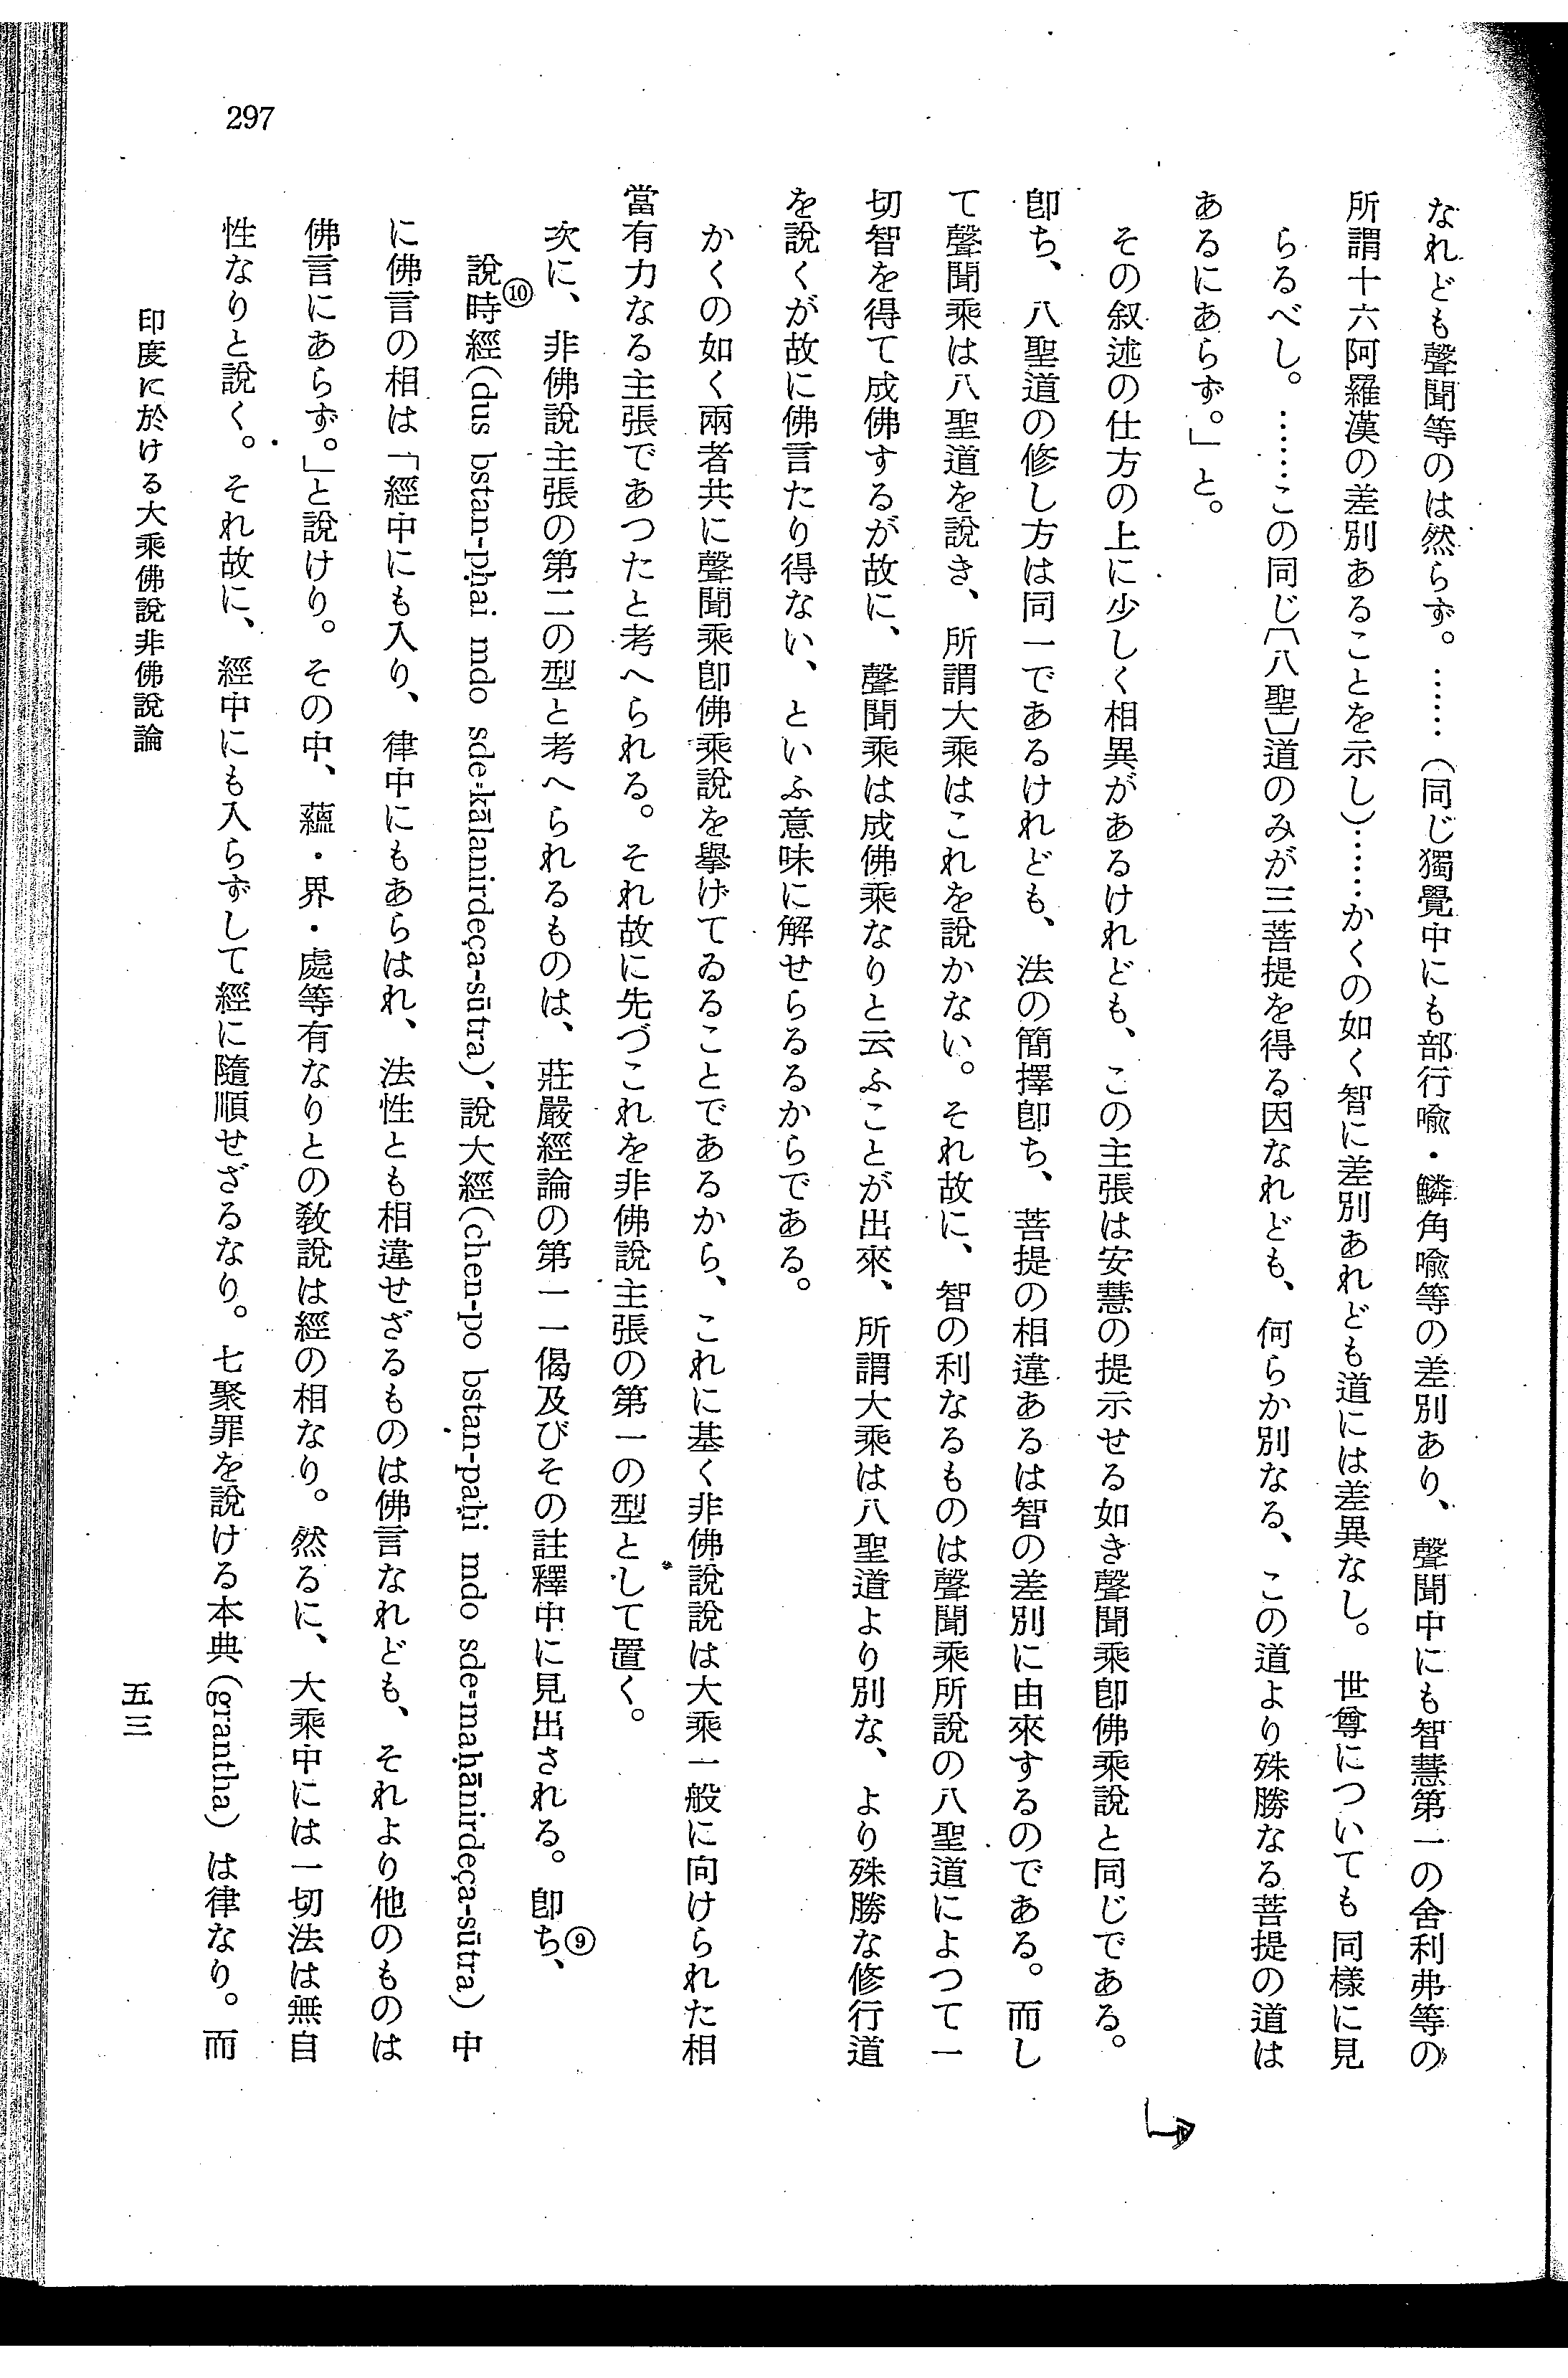 297
なれども聲聞等のは然らず。……(同じ獨覺中にも部行喩・鱗角喩等の差別あり、聲聞中にも智慧第一の舍利弗等の
所謂十六阿羅漢の差別あることを示し)……かくの如く智に差別あれども道には差異なし。世尊についても同樣に見
らるべし。……この同じ〔八聖〕道のみが三菩提を得る因なれども、何らか別なる、この道より殊勝なる菩提の道は
あるにあらず。」と。
その叙述の仕方の上に少しく相異があるけれども、この主張は安慧の提示せる如き聲聞乘卽佛乘說と同じである。
卽ち、八聖道の修し方は同一であるけれども、法の簡擇卽ち、菩提の相違あるは智の差別に由來するのである。而し
て聲聞乘は八聖道を說き、所謂大乘はこれを說かない。それ故に、智の利なるものは聲聞乘所說の八聖道によつて一
切智を得て成佛するが故に、聲聞乘は成佛乘なりと云ふことが出來、所謂大乘は八聖道より別な、より殊勝な修行道
を說くが故に佛言たり得ない、といふ意味に解せらるるからである。
かくの如く兩者共に聲聞乘卽佛乘說を擧げてゐることであるから、これに基く非佛說說は大乘一般に向けられた相
當有力なる主張であつたと考へられる。それ故に先づこれを非佛說主張の第一の型として置く。
次に、非佛說主張の第二の型と考へられるものは、莊嚴經論の第一一偈及びその註釋中に見出される。卽ち、⑨
說時經⑩(dus bstan-pḥai mdo sde=kālanirdeça-sūtra)、說大經(chen-po bstan-paḥi mdo sde=maḥānirdeça-sūtra)中
に佛言の相は「經中にも入り、律中にもあらはれ、法性とも相違せざるものは佛言なれども、それより他のものは
佛言にあらず。」と說けり。その中、蘊・界・處等有なりとの敎說は經の相なり。然るに、大乘中には一切法は無自
性なりと說く。それ故に、經中にも入らずして經に隨順せざるなり。七聚罪を說ける本典(grantha)は律なり。而
印度に於ける大乘佛說非佛說論
五三